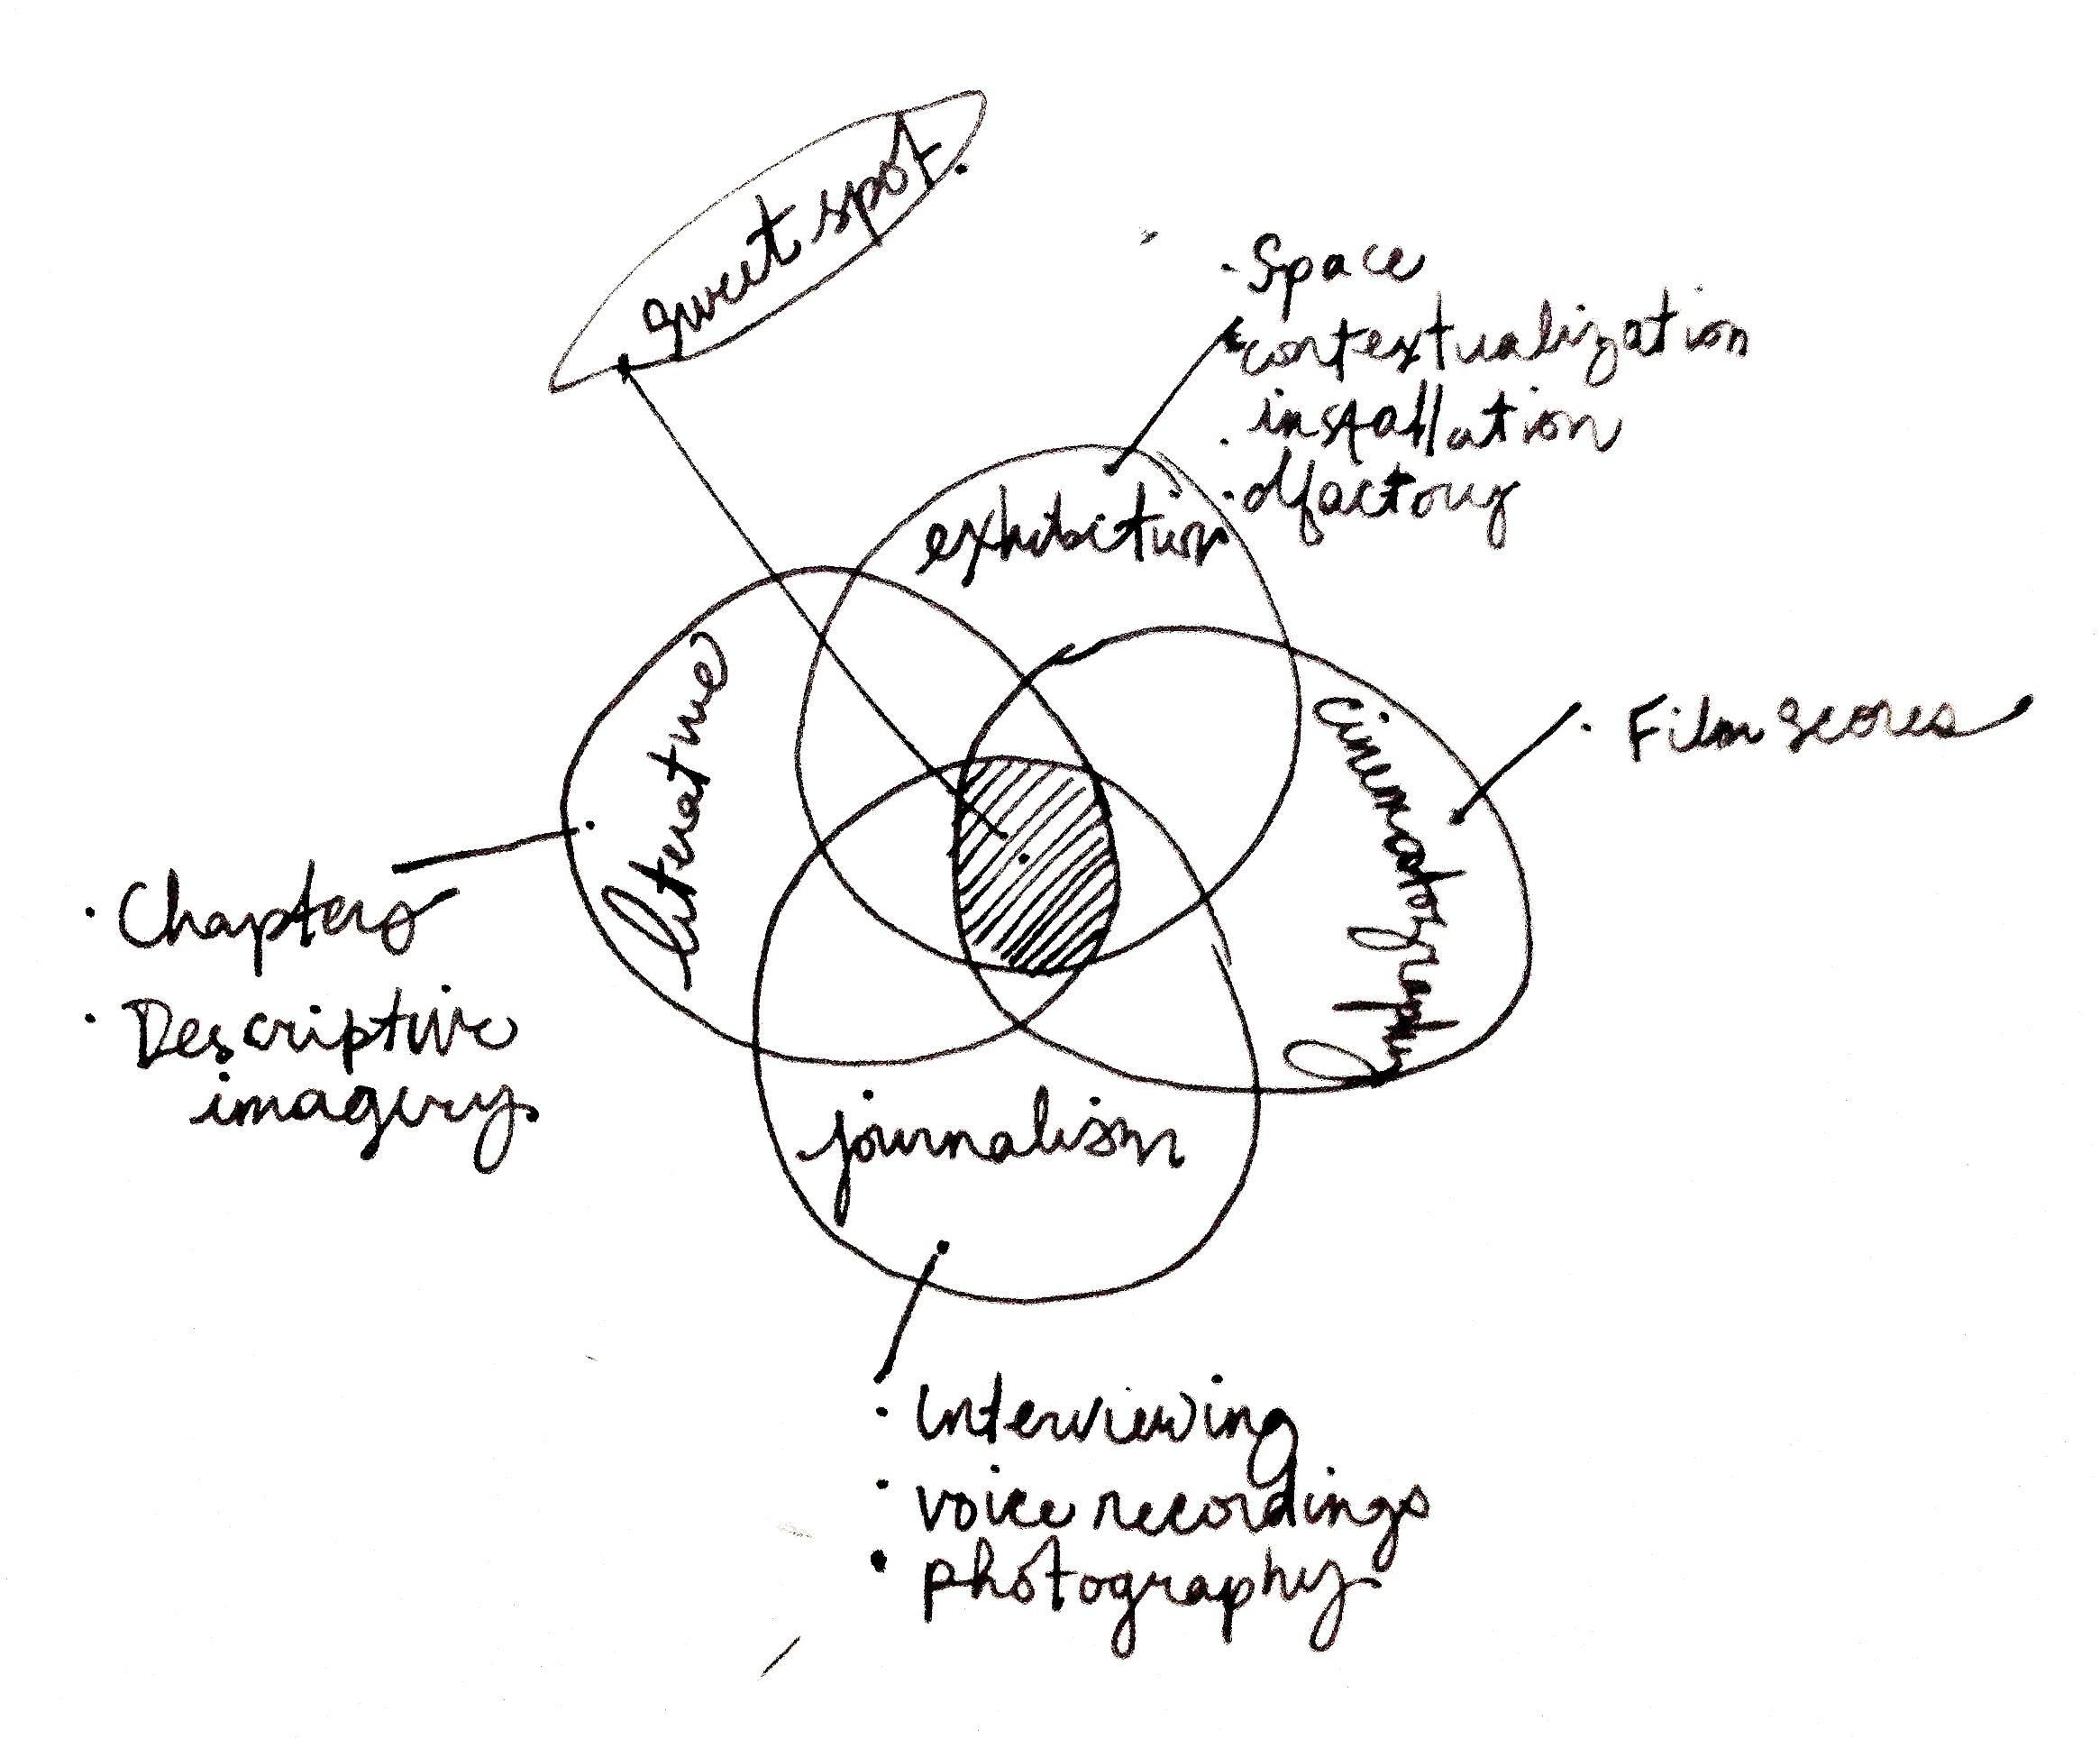 sweet spot.
· Space
contextualization
· installation
· olfactory
exhibition
literature
cinematography
· Film scores
· Chapters
· Descriptive
imagery
journalism
· Interviewing
· voice recordings
· photography